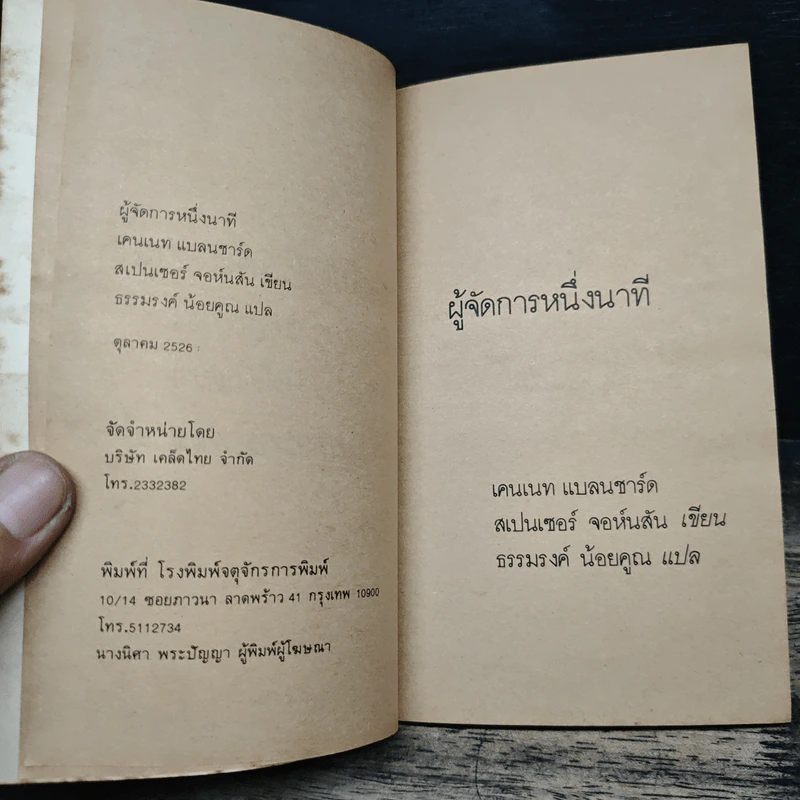 ผู้จัดการหนึ่งนาที
เคนเนท แบลนชาร์ด
สเปนเซอร์ จอห์นสัน เขียน
ธรรมรงค์ น้อยคูณ แปล
ตุลาคม 2526
จัดจำหน่ายโดย
บริษัท เคล็ดไทย จำกัด
โทร.2332382
พิมพ์ที่ โรงพิมพ์จตุจักรการพิมพ์
10/14 ซอยภาวนา ลาดพร้าว 41 กรุงเทพ 10900
โทร.5112734
นางนิศา พระปัญญา ผู้พิมพ์ผู้โฆษณา
ผู้จัดการหนึ่งนาที
เคนเนท แบลนชาร์ด
สเปนเซอร์ จอห์นสัน เขียน
ธรรมรงค์ น้อยคูณ แปล